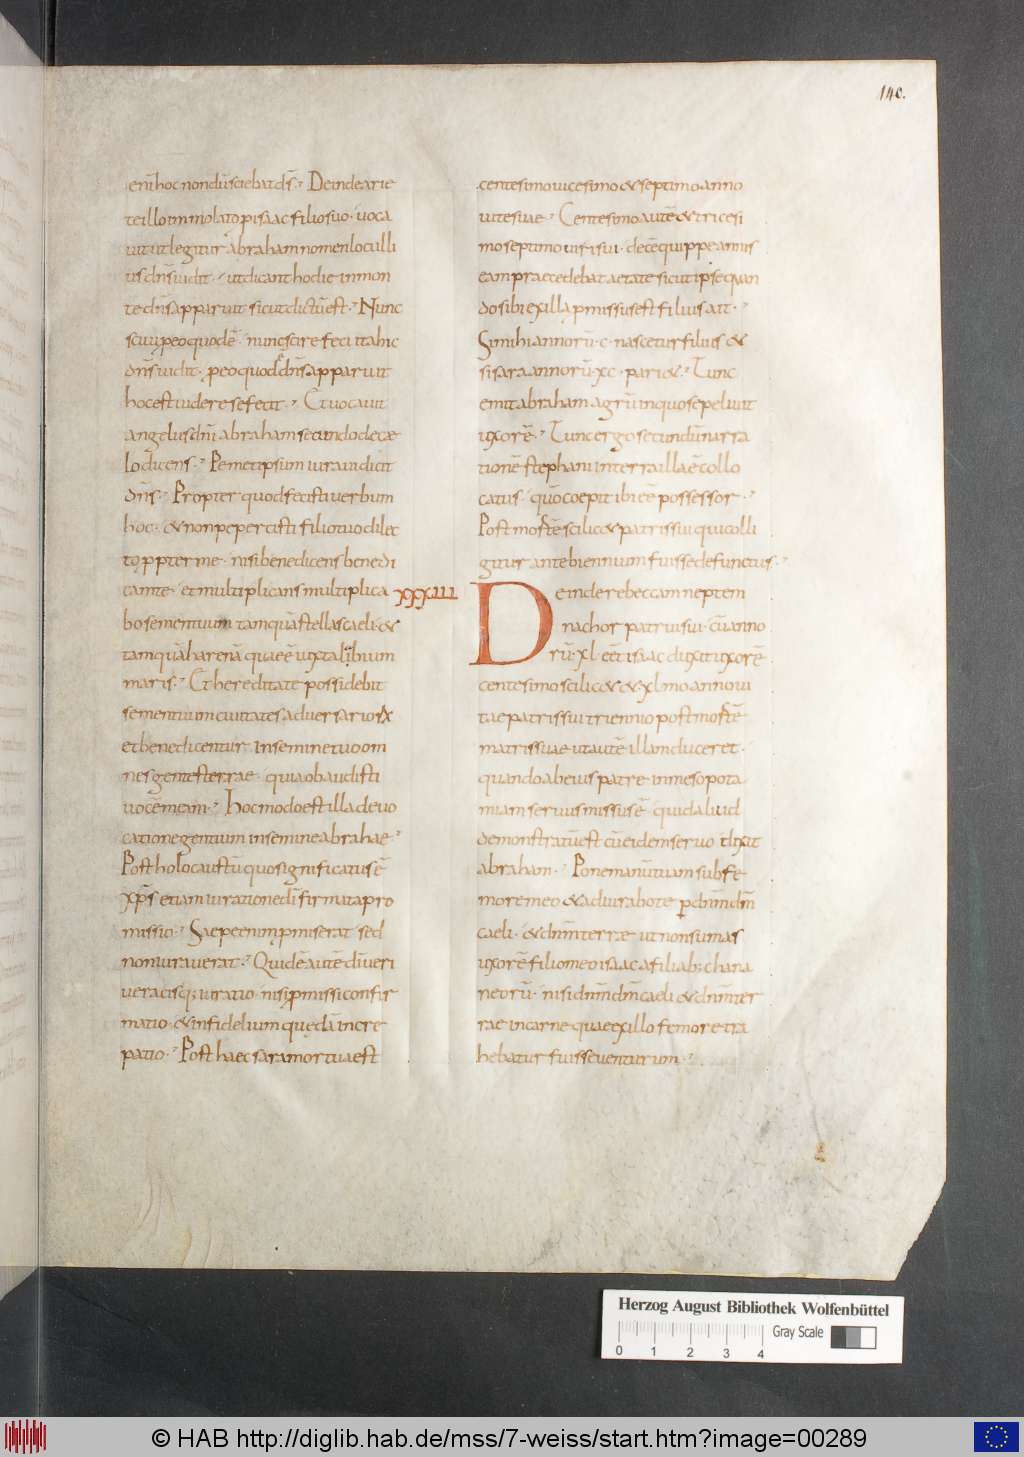 140.
eni hoc nondū sciebat dn̄s. Deinde arie
te illo immolato p isaac filio suo. uoca
uit ut legitur abraham nomen loci illi
us dn̄s uidit. ut dicant hodie in mon
te dn̄s apparuit sicut dictū est. Nunc
sciui p eo quod ē. nunc scire feci ita hic
dn̄s uidit. p eo quod ē dn̄s apparuit
hoc est uidere se fecit. Et uocauit
angelus dn̄i abraham secundo de cæ
lo dicens. Pemetipsum iuraui dicit
dn̄s. Propter quod fecisti uerbum
hoc. & non pepercisti filio tuo dilec
to ppter me. nisi benedicens benedi
cam te. et multiplicans multiplica
bo semen tuum tamquā stellas caeli. &
tamquā harenā quae ē iuxta labium
maris. Et hereditate possidebit
semen tuum ciuitates aduersariorꝝ
et benedicentur in semine tuo om
nes gentes terrae. quia obaudisti
uocē meam. Hoc modo est illa de uo
catione gentium in semine abrahae
Post holocaustū quo significatus ē
xp̄s etiam iuratione di firmata pro
missio. Saepe enim pmiserat sed
non iurauerat. Quid ē autē di ueri
ueracisq; iuratio. nisi pmissi confir
matio. & infidelium quędā incre
patio. Post haec sara mortua est
centesimo uicesimo & septimo anno
uitę suae. Centesimo autē & tricesi
mo septimo uiri sui. decē quippe annis
eam praecedebat aetate sicut ipse quan
do sibi ex illa pmissus est filius ait.
Si mihi annorū. c. nascetur filius &
si sara annorū. xc. pari&. Tunc
emit abraham agrū in quo sepeliuit
uxorē. Tunc ergo secundū narra
tionē stephani in terra illa ē collo
catus. quō coepit ibi eē possessor.
Post mortē scilic& patris sui qui colli
gitur ante biennium fuisse defunctus.
xxxiii
Deinde rebeccam neptem
nachor patrui sui. cū anno
rū. xl. eēt isaac duxit uxorē
centesimo scilic& & xlmo anno ui
tae patris sui triennio post mortē
matris suae ut autē illam duceret.
quando ab eius patre in mesopota
miam seruus missus ē. quid aliud
demonstratū est cū eidem seruo dixit
abraham. Pone manū tuam sub fe
more meo & adiurabo te p dn̄m dm̄
caeli. & dn̄m terræ ut non sumas
uxorē filio meo isaac a filiab; chana
neorū. nisi dn̄m dm̄ caeli & dn̄m ter
rae in carne quae ex illo femore tra
hebatur fuisse uenturum.
Herzog August Bibliothek Wolfenbüttel
0 1 2 3 4 Gray Scale
© HAB http://diglib.hab.de/mss/7-weiss/start.htm?image=00289